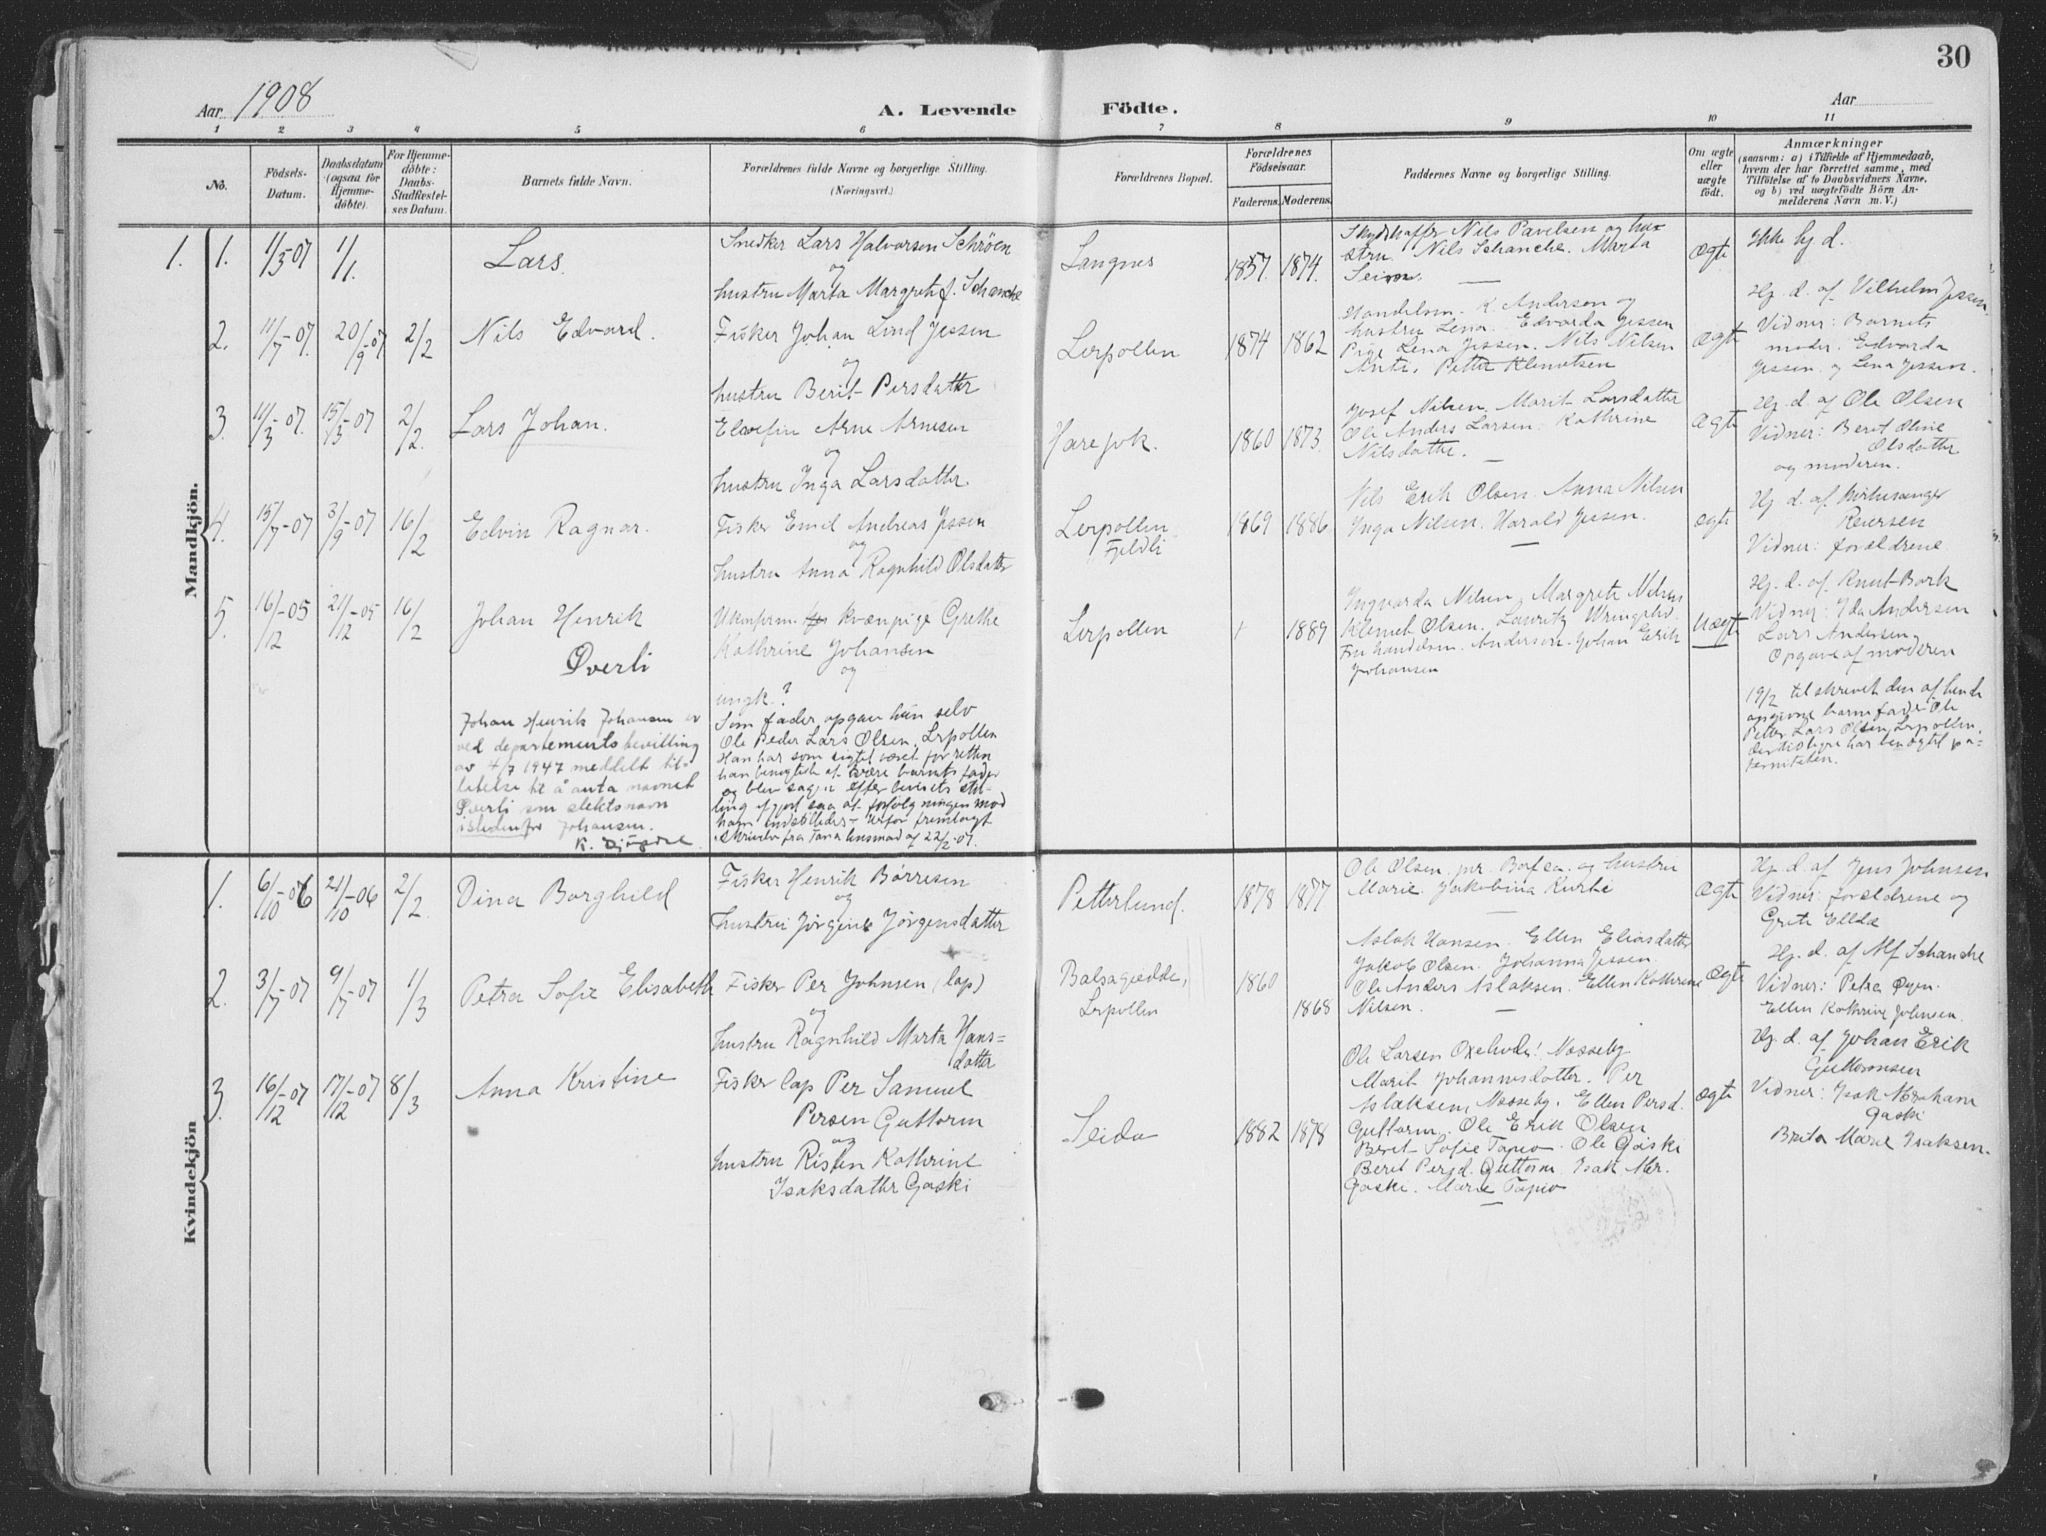 30
Aar 1908
A. Levende Födte.
Aar
1 2 3 4 5 6 7 8 9 10 11
No.
Födsels-Datum.
Daabsdatum (ogsaa for Hjemmedöbte).
For Hjemmedöbte: Daabs-Stadfæstelses Datum.
Barnets fulde Navn.
Forældrenes fulde Navne og borgerlige Stilling.
(Næringsvei.)
Forældrenes Bopæl.
Forældrenes Födselsaar.
Faderens. Moderens.
Faddernes Navne og borgerlige Stilling.
Om ægte eller uægte født.
Anmærkninger
(saasom: a) i Tilfælde af Hjemmedaab,
hvem der har forrettet samme, med
Tilföielse af to Daabsvidners Navne,
og b) ved uægtefödte Börn An-
melderens Navn m. V.)
Mandkjön.
1. 1. 1/3-07 1/1. Lars.
Snedker Lars Halvorsen Schrøen
og
hustru Marta Margrethe f. Schanche
Langnes
1857. 1874.
Skydsskaffer Nils Pavelsen og hu-
stru. Nils Schanche. Marta
ægte
Ikke hj d.
2. 11/7-07. 20/9-07 2/2 Nils Edvard.
Fisker Johan Lind Jessen
og
hustru Berit Persdatter
Lerpollen
1874 1862
Handelsm. K. Andersen og
hustru Lena. Edvarda Jessen
Pige Lena Jessen. Nils Nilsen
Anti. Petter Klemetsen
ægte
Hj. d. af Vilhelm Jessen
Vidner: Barnets
moder. Edvarda
Jessen og Lena Jessen.
3. 11/3-07. 15/3-07 2/2. Lars Johan.
Elvefin Arne Arnesen
og
hustru Inga Larsdatter.
Harejok.
1860 1873.
Josef Nilsen. Marit Larsdatter
Ole Anders Larsen. Kathrine
Nilsdatter.
ægte
Hj. d. af Ole Olsen
Vidner: Berit Oline
Olsdatter
og moderen.
4. 15/7-07 3/9-07 16/2 Edvin Ragnar.
Fisker Emil Andreas Jessen
og
hustru Anna Ragnhild Olsdatter
Lerpollen
Fjeldli
1869 1886
Nils Erik Olsen. Anna Nilsen
Inga Nilsen. Harald Jessen.
ægte
Hj d. af Kirkesanger
Reiersen
Vidner: forældrene
5. 16/12-05 21/12-05 16/2 Johan Henrik
Øverli
Ukonfirm. kvænpige Grethe
Kathrine Johansen
og
ungk.?
Som fader opgav hun selv
Ole Peder Lars Olsen, Lerpollen
Han har som sigtet været for retten
han benegtede at være barnets fader
og blev sagen efter bevisets stil-
ling afgjort saa at forfølgningen mod
ham indstilledes - herfor fremlagt
skrivelse fra Tana lensmand af 22/2-07.
Johan Henrik Johansen er
ved departementsbevilling
av 4/7 1947 meddelt til-
latelse til å anta navnet
Øverli som slektsnavn
istedenfor Johansen.
Lerpollen
+ 1889
Ingvarda Nilsen. Margrete Nilsen
Klemet Olsen. Lauritz
Fru handelsm. Andersen. Johan Erik
Johansen
uægte
Hj. d. af Knut Bark
Vidner: Ida Andersen
Lars Andersen
Opgave af moderen
19/2 tilskrevet den af hende
opgivne barnefader Ole
Petter Lars Olsen, Lerpollen,
Denne har benegtet pa-
terniteten.
Kvindekjön
1. 6/10-06 21/10-06 2/2. Dina Borghild
Fisker Henrik Børresen
og
hustru Jørgine Jørgensdatter
Petterlund.
1878 1877
Ole Olsen jnr. Borfsa. og hustru
Marie. Jakobina Kurbi
ægte
Hj. d. af Jens Johnsen
Vidner: forældrene og
Grete Ellda
2. 3/7-07 9/7-07 1/3 Petra Sofie Elisabeth
Fisker Per Johnsen (lap)
og
hustru Ragnhild Marta Hans=
datter
Balsagedde,
Lerpollen
1860 1868
Aslak Hansen. Ellen Eliasdatter
Jakob Olsen. Johanna Jessen.
Ole Anders Aslaksen. Ellen Kathrine
Nilsen.
ægte
Hj. d. af Alf Schanche
Vidner: Petra Øyen.
Ellen Kathrine Johnsen.
3. 16/12-07 17/12-07 8/3 Anna Kristine
Fisker lap Per Samuel
Persen Guttorm
og
hustru Risten Kathrine
Isaksdatter Gaski
Seida
1882 1878
Ole Larsen Oxehode, Næsseby
Marit Johannesdatter. Per
Aslaksen, Næsseby. Ellen Persd.
Guttorm. Ole Erik Olsen
Berit Sofie Tapio. Ole Gaski
Berit Persd. Guttorm. Isak Abr.
Gaski. Marie Tapio
ægte
Hj. d. af Johan Erik
Guttormsen
Vidner: Isak Abraham
Gaski
Brita Marie Isaksen.